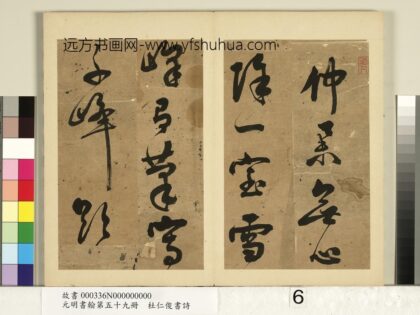 远方书画网-www.yfshuhua.com
仲舉無心
除一室雪
峰筆寫
千峰
故書 000336N000000000
元明書翰第五十九冊 杜仁俊書詩
6